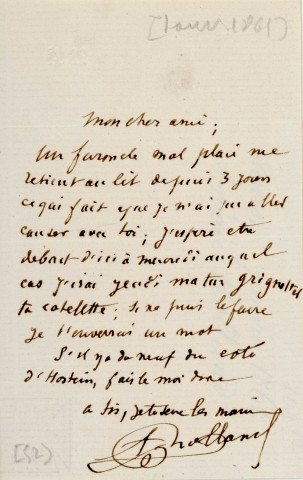 [Janv. 1861]
Mon cher ami;
Un furoncle mal placé me
retient au lit depuis 3 jours
ce qui fait que je n'ai pu aller
causer avec toi; j'espère être
debout d'ici à mercredi auquel
cas j'irai jeudi matin grignoter
ta cotelette; si ne puis le faire
je t'enverrai un mot
S'il y a du neuf du coté
d'Hostein, fais le moi dire
a toi, je te serre la main
[52]